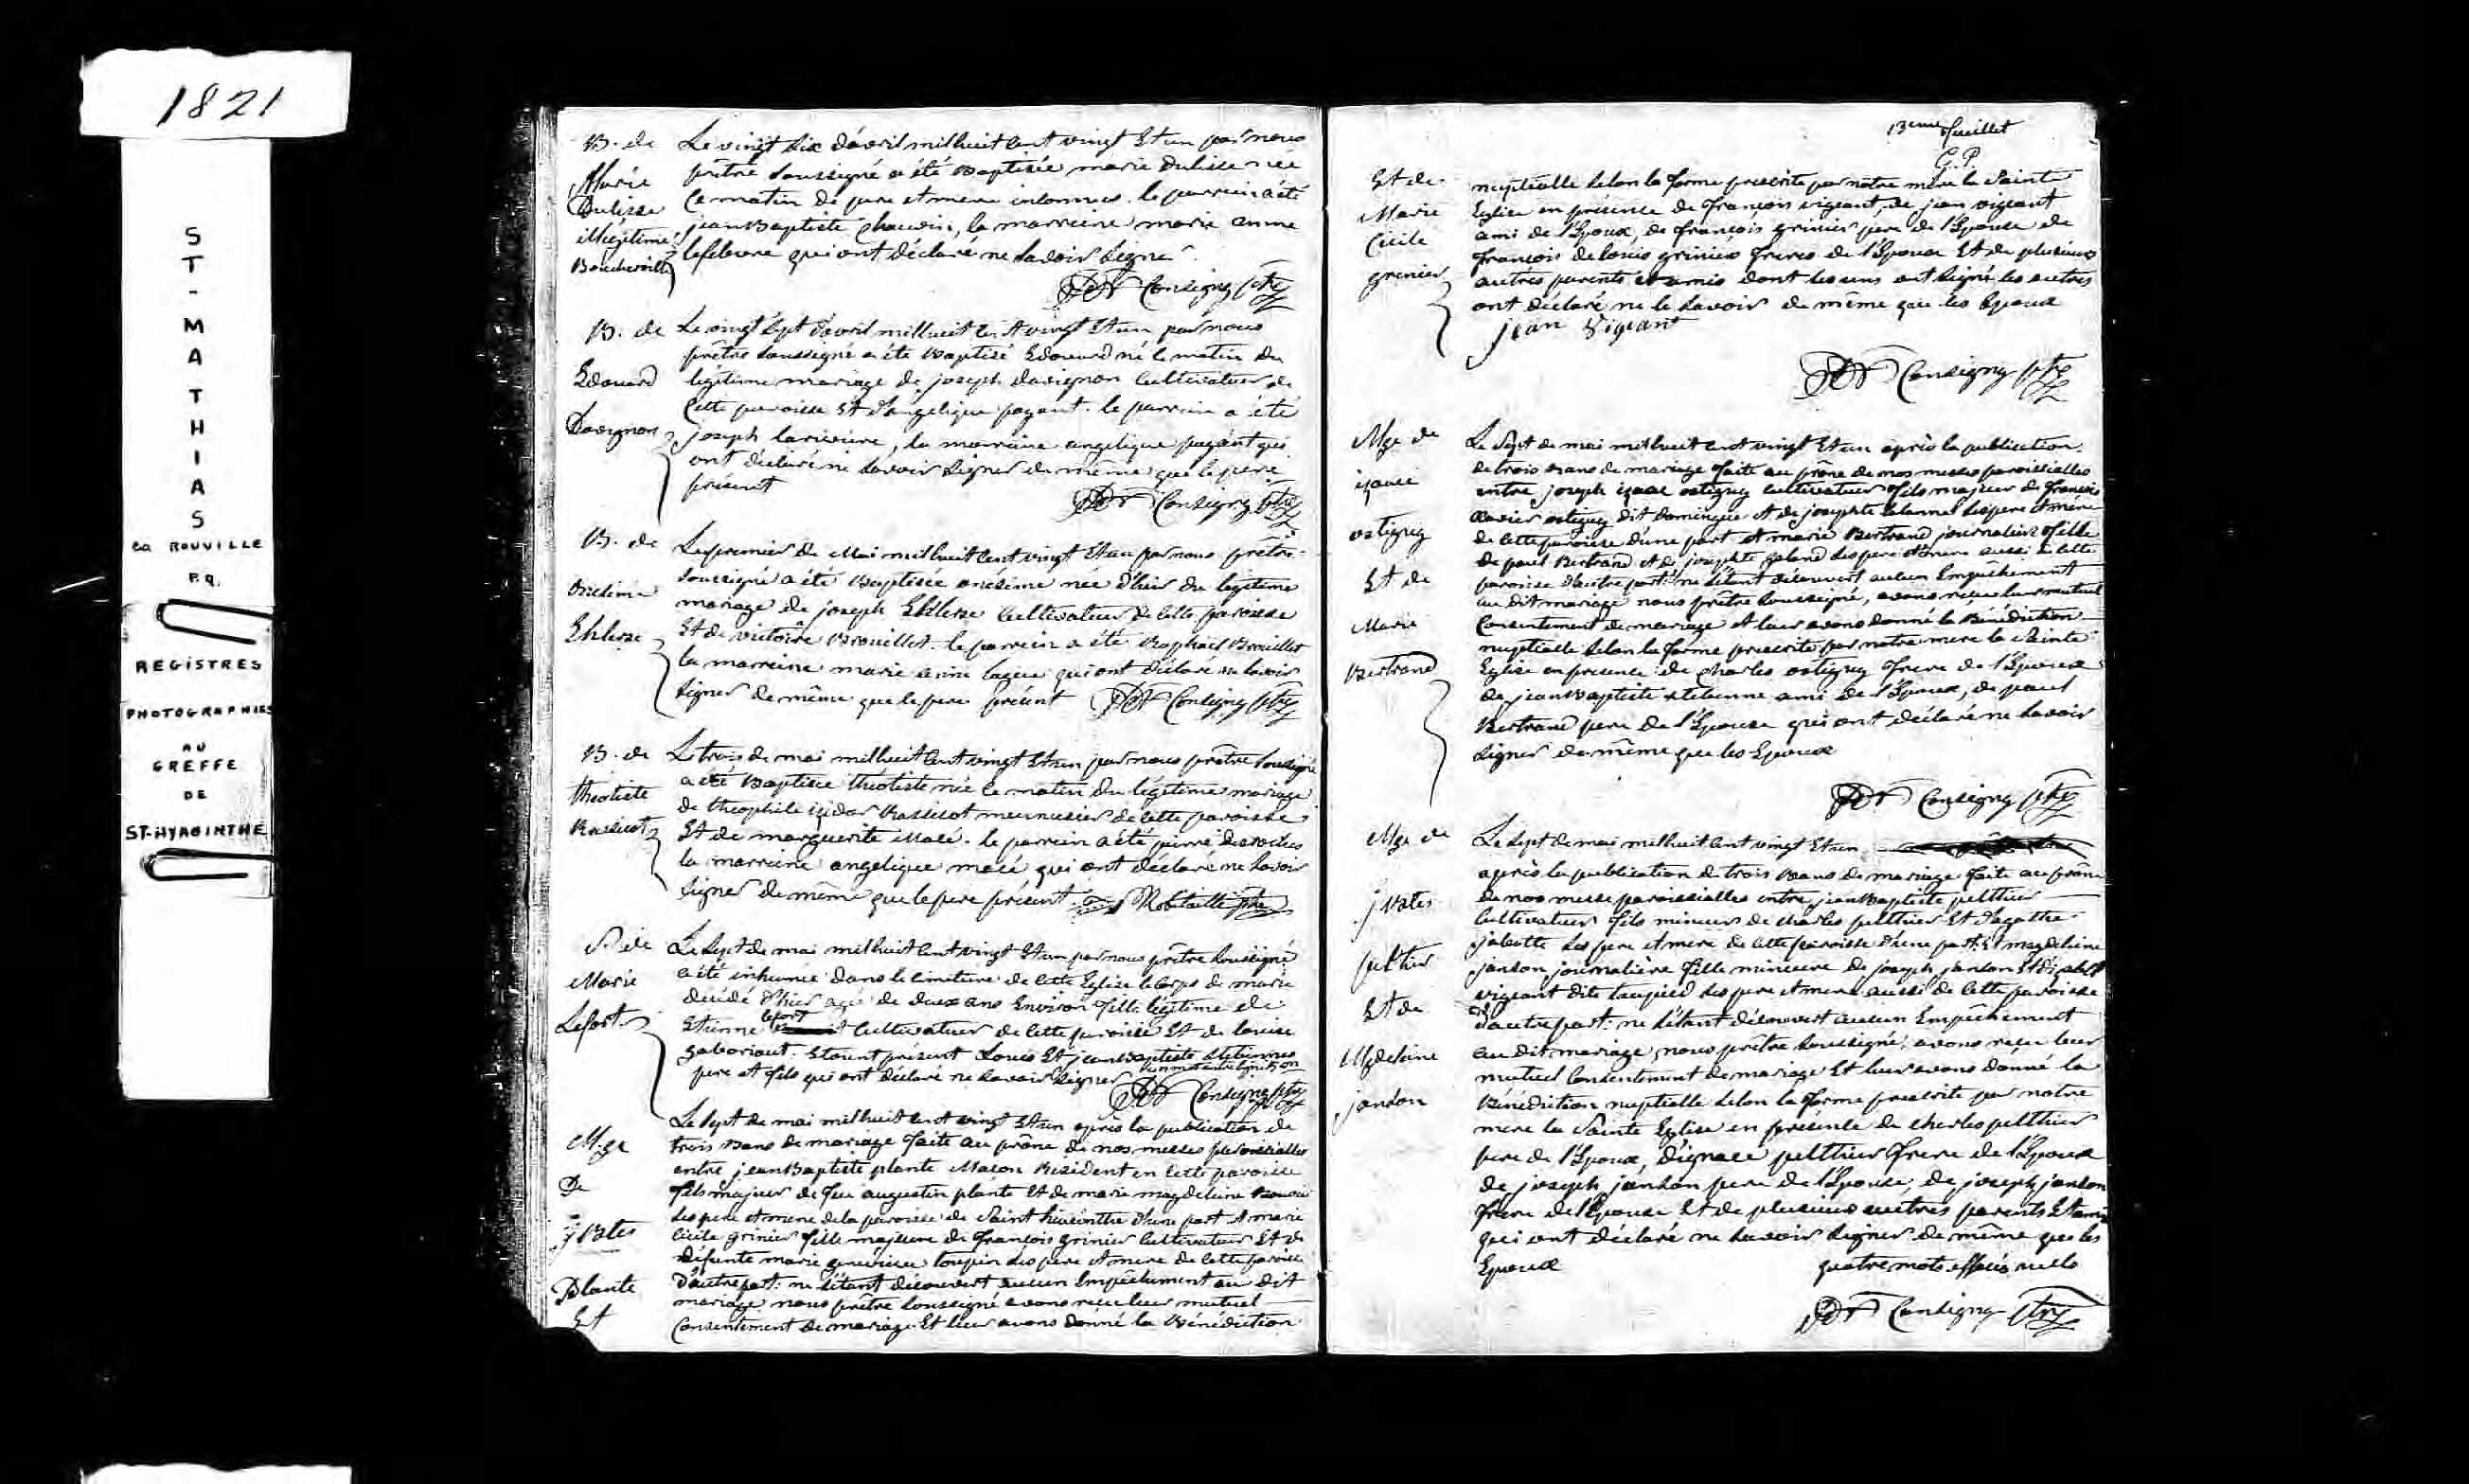 1821
ST-MATHIAS
Co ROUVILLE
P.Q.
REGISTRES
PHOTOGRAPHIES
AU
GREFFE
DE
ST-HYACINTHE
B. de
Marie
Dulisse
illégitime
Boucherville
Le vingt six d'avril mil huit cent vingt Et un par nous
prêtre soussigné a été Baptisée marie Dulisse née
ce matin de pere et mere inconnus. le parrein a été
jean Baptiste Chauvin, la marreine marie anne
lefebvre qui ont déclaré ne savoir signer.
Consigny ptre
B. de
Edouard
Davignon
Le vingt sept d'avril mil huit cent vingt Et un par nous
prêtre soussigné a été Baptisé Edouard né le matin du
légitime mariage de joseph davignon Cultivateur de
Cette paroisse Et d'angelique payant. le parrein a été
joseph lariviere, la marreine angelique payant qui
ont déclaré ne savoir signer de même que le pere
présent
Consigny ptre
B. de
Onésime
Le premier de Mai mil huit cent vingt Et un par nous prêtre
soussigné a été Baptisée onésime née d'hier du légitime
mariage de joseph Cultivateur de Cette paroisse
Et de victoire Brouillet. le parrein a été Raphael Brouillet
la marreine marie anne qui ont déclaré ne savoir
signer de même que le pere présent Consigny ptre
B. de
théotiste
Rassicot
Le trois de mai mil huit cent vingt Et un par nous prêtre soussigné
a été Baptisée théotiste née ce matin du légitime mariage
de théophile Rassicot menuisier de cette paroisse
Et de marguerite Massé. le parrein a été pierre
la marreine angelique massé qui ont déclaré ne savoir
signer de même que le pere présent. Robitaille ptre
S. de
Marie
Lefort
Le sept de mai mil huit cent vingt Et un par nous prêtre soussigné
a été inhumé dans le cimetiere de cette Eglise le corps de marie
décédé d'hier agé de deux ans Environ fille légitime de
Etienne lefort Cultivateur de cette paroisse Et de louise
gaboriaut. Etaient présent Louis Et jean Baptiste
pere et fils qui ont déclaré ne savoir signer un mot
Consigny ptre
M.ge
De
j Bates
Plante
Et
Le sept de mai mil huit cent vingt Et un après la publication de
trois Bans de mariage faite au prône de nos messes paroissialles
entre jean Baptiste plante Macon Résident en cette paroisse
fils majeur de feu augustin plante Et de marie magdeleine
ses pere et mere de la paroisse de Saint d'une part Et marie
Cicile grinier fille majeure de françois grinier Cultivateur Et de
défunte marie genevieve toupin ses pere et mere de cette paroisse
D'autre part: ne s'étant découvert aucun Empêchement au dit
mariage nous prêtre soussigné avons reçu leur mutuel
Consentement de mariage Et leur avons donné la Bénédiction
13eme feuillet
G.P.
Et de
Marie
Cicile
grinier
nuptialle selon la forme prescrite par notre mere la Sainte
Eglise en présence de françois vigeant, de jean vigeant
ami de l'Epoux, de françois grinier pere de l'Epouse de
françois de louis grinier freres de l'Epouse Et de plusieurs
autres parents et amis dont les uns ont signé les autres
ont déclaré ne le savoir de même que les Epoux
jean vigeant
Consigny ptre
Mge de
ostigny
Et de
Marie
Bertrand
Le sept de mai mil huit cent vingt Et un après la publication
de trois Bans de mariage faite au prône de nos messes paroissialles
entre joseph ostigny cultivateur fils majeur de françois
xavier ostigny dit Domingue et de josephte ses pere et mere
de cette paroisse d'une part et marie Bertrand journaliere fille
de paul Bertrand et de josephte galand ses pere et mere aussi de cette
paroisse d'autre part: ne s'étant découvert aucun Empêchement
au dit mariage nous prêtre soussigné, avons reçu leur mutuel
Consentement de mariage Et leur avons donné la Bénédiction
nuptialle selon la forme prescrite par notre mere la Sainte
Eglise en présence de charles ostigny frere de l'Epoux
de jean Baptiste ami de l'Epoux, de paul
Bertrand pere de l'Epouse qui ont déclaré ne savoir
signer de même que les Epoux
Consigny ptre
Mge de
j Bates
pelthier
Et de
Mgdeleine
janson
Le sept de mai mil huit cent vingt Et un
après la publication de trois Bans de mariage faite au prône
de nos messe paroissialles entre jean Baptiste pelthier
Cultivateur fils mineur de charles pelthier Et d'agathe
ses pere et mere de cette paroisse d'une part: Et magdeleine
janson journalière fille mineure de joseph janson Et
vigeant dite taupied ses pere et mere aussi de cette paroisse
D'autre part: ne s'étant découvert aucun Empêchement
au dit mariage, nous prêtre soussigné, avons reçu leur
mutuel Consentement de mariage Et leur avons donné la
Bénédiction nuptialle selon la forme prescrite par notre
mere la Sainte Eglise en présence de charles pelthier
pere de l'Epoux, d'ignace pelthier frere de l'Epoux
de joseph janson pere de l'Epouse, de joseph janson
frere de l'Epouse Et de plusieurs autres parents Et amis
qui ont déclaré ne savoir signer de même que les
Epoux quatre mots effacés nuls
Consigny ptre